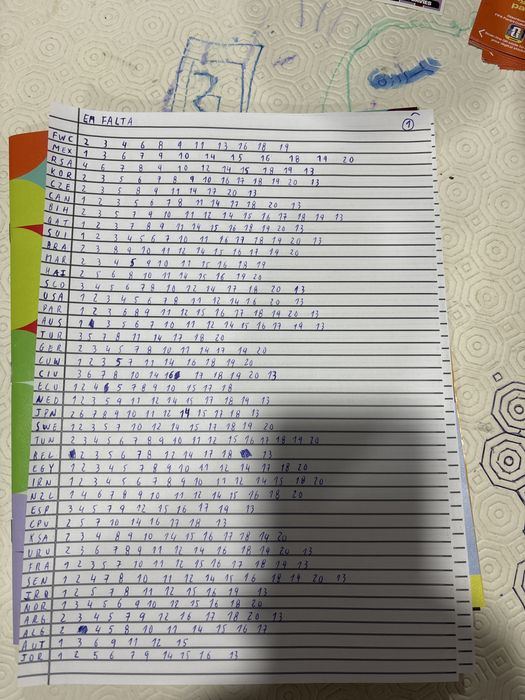 EM FALTA
1
FWC 2 3 4 6 8 9 11 13 16 18 19
MEX 1 3 6 7 9 10 14 15 16 18 19 20
RSA 4 6 7 8 9 10 12 14 15 18 19 13
KOR 2 3 5 6 7 8 9 10 16 17 18 19 20 13
CZE 2 3 5 8 9 11 14 17 20 13
CAN 1 2 3 5 6 7 8 11 14 17 18 20 13
BIH 2 3 5 7 9 10 11 12 14 15 16 17 18 19 13
QAT 1 2 3 7 8 9 11 14 15 16 18 19 20 13
SUI 1 2 3 4 5 6 7 10 11 16 17 18 19 20 13
BRA 2 3 8 9 10 11 12 14 15 16 17 19 20
MAR 2 3 4 5 9 10 11 15 16 18 19
HAI 2 5 6 8 10 11 14 15 16 19 20
SCO 3 4 5 6 7 8 10 12 14 17 18 20 13
USA 1 2 3 4 5 6 7 8 11 12 14 16 20 13
PAR 1 2 3 6 8 9 11 12 15 16 17 18 20 13
AUS 1 3 5 6 7 10 11 12 14 15 16 17 19 13
TUR 3 5 7 8 11 14 17 18 20
GER 2 3 4 5 7 8 10 11 14 17 19 20
CUW 1 2 3 5 7 11 14 15 16 18 19 20
CIV 3 6 7 8 10 14 16 17 18 19 20 13
ECU 1 2 4 5 7 8 9 10 15 17 18
NED 1 2 3 5 9 11 12 14 15 17 18 19 13
JPN 2 6 7 8 9 10 11 12 14 15 17 18 13
SWE 1 2 3 5 7 10 12 14 15 17 18 19 20
TUN 2 3 4 5 6 7 8 9 10 11 12 15 16 17 18 19 20
BEL 2 3 5 6 7 8 12 14 17 18 13
EGY 1 2 3 4 5 7 8 9 10 11 12 14 17 18 20
IRN 1 2 3 4 5 6 7 8 9 10 11 12 14 15 18 20
NZL 1 4 6 7 8 9 10 11 12 14 15 16 18 20
ESP 3 4 5 7 9 12 15 16 17 19 13
CPV 2 5 7 10 14 16 17 18 13
KSA 2 3 4 8 9 10 14 15 16 17 18 19 20
URU 2 3 6 7 8 9 11 12 14 16 18 19 20 13
FRA 1 2 3 5 7 10 11 12 15 16 17 18 19 13
SEN 1 2 4 7 8 10 11 12 14 15 16 18 19 20 13
IRQ 1 2 5 7 8 11 12 15 16 19 13
NOR 1 3 4 5 6 9 10 12 15 16 18 20
ARG 2 3 4 5 7 9 12 16 17 18 20 13
ALG 2 4 5 8 10 11 14 15 16 17
AUT 1 3 6 9 11 12 15
JOR 1 2 5 6 7 9 14 15 16 13